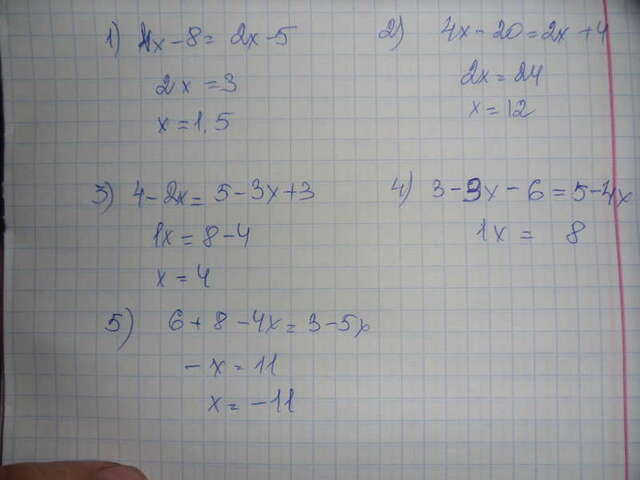 1) 4x-8= 2x-5
2x=3
x=1,5
2) 4x-20=2x+4
2x=24
x=12
3) 4-2x=5-3x+3
1x=8-4
x=4
4) 3-3x-6=5-4x
1x= 8
5) 6+8-4x=3-5x
-x=11
x=-11